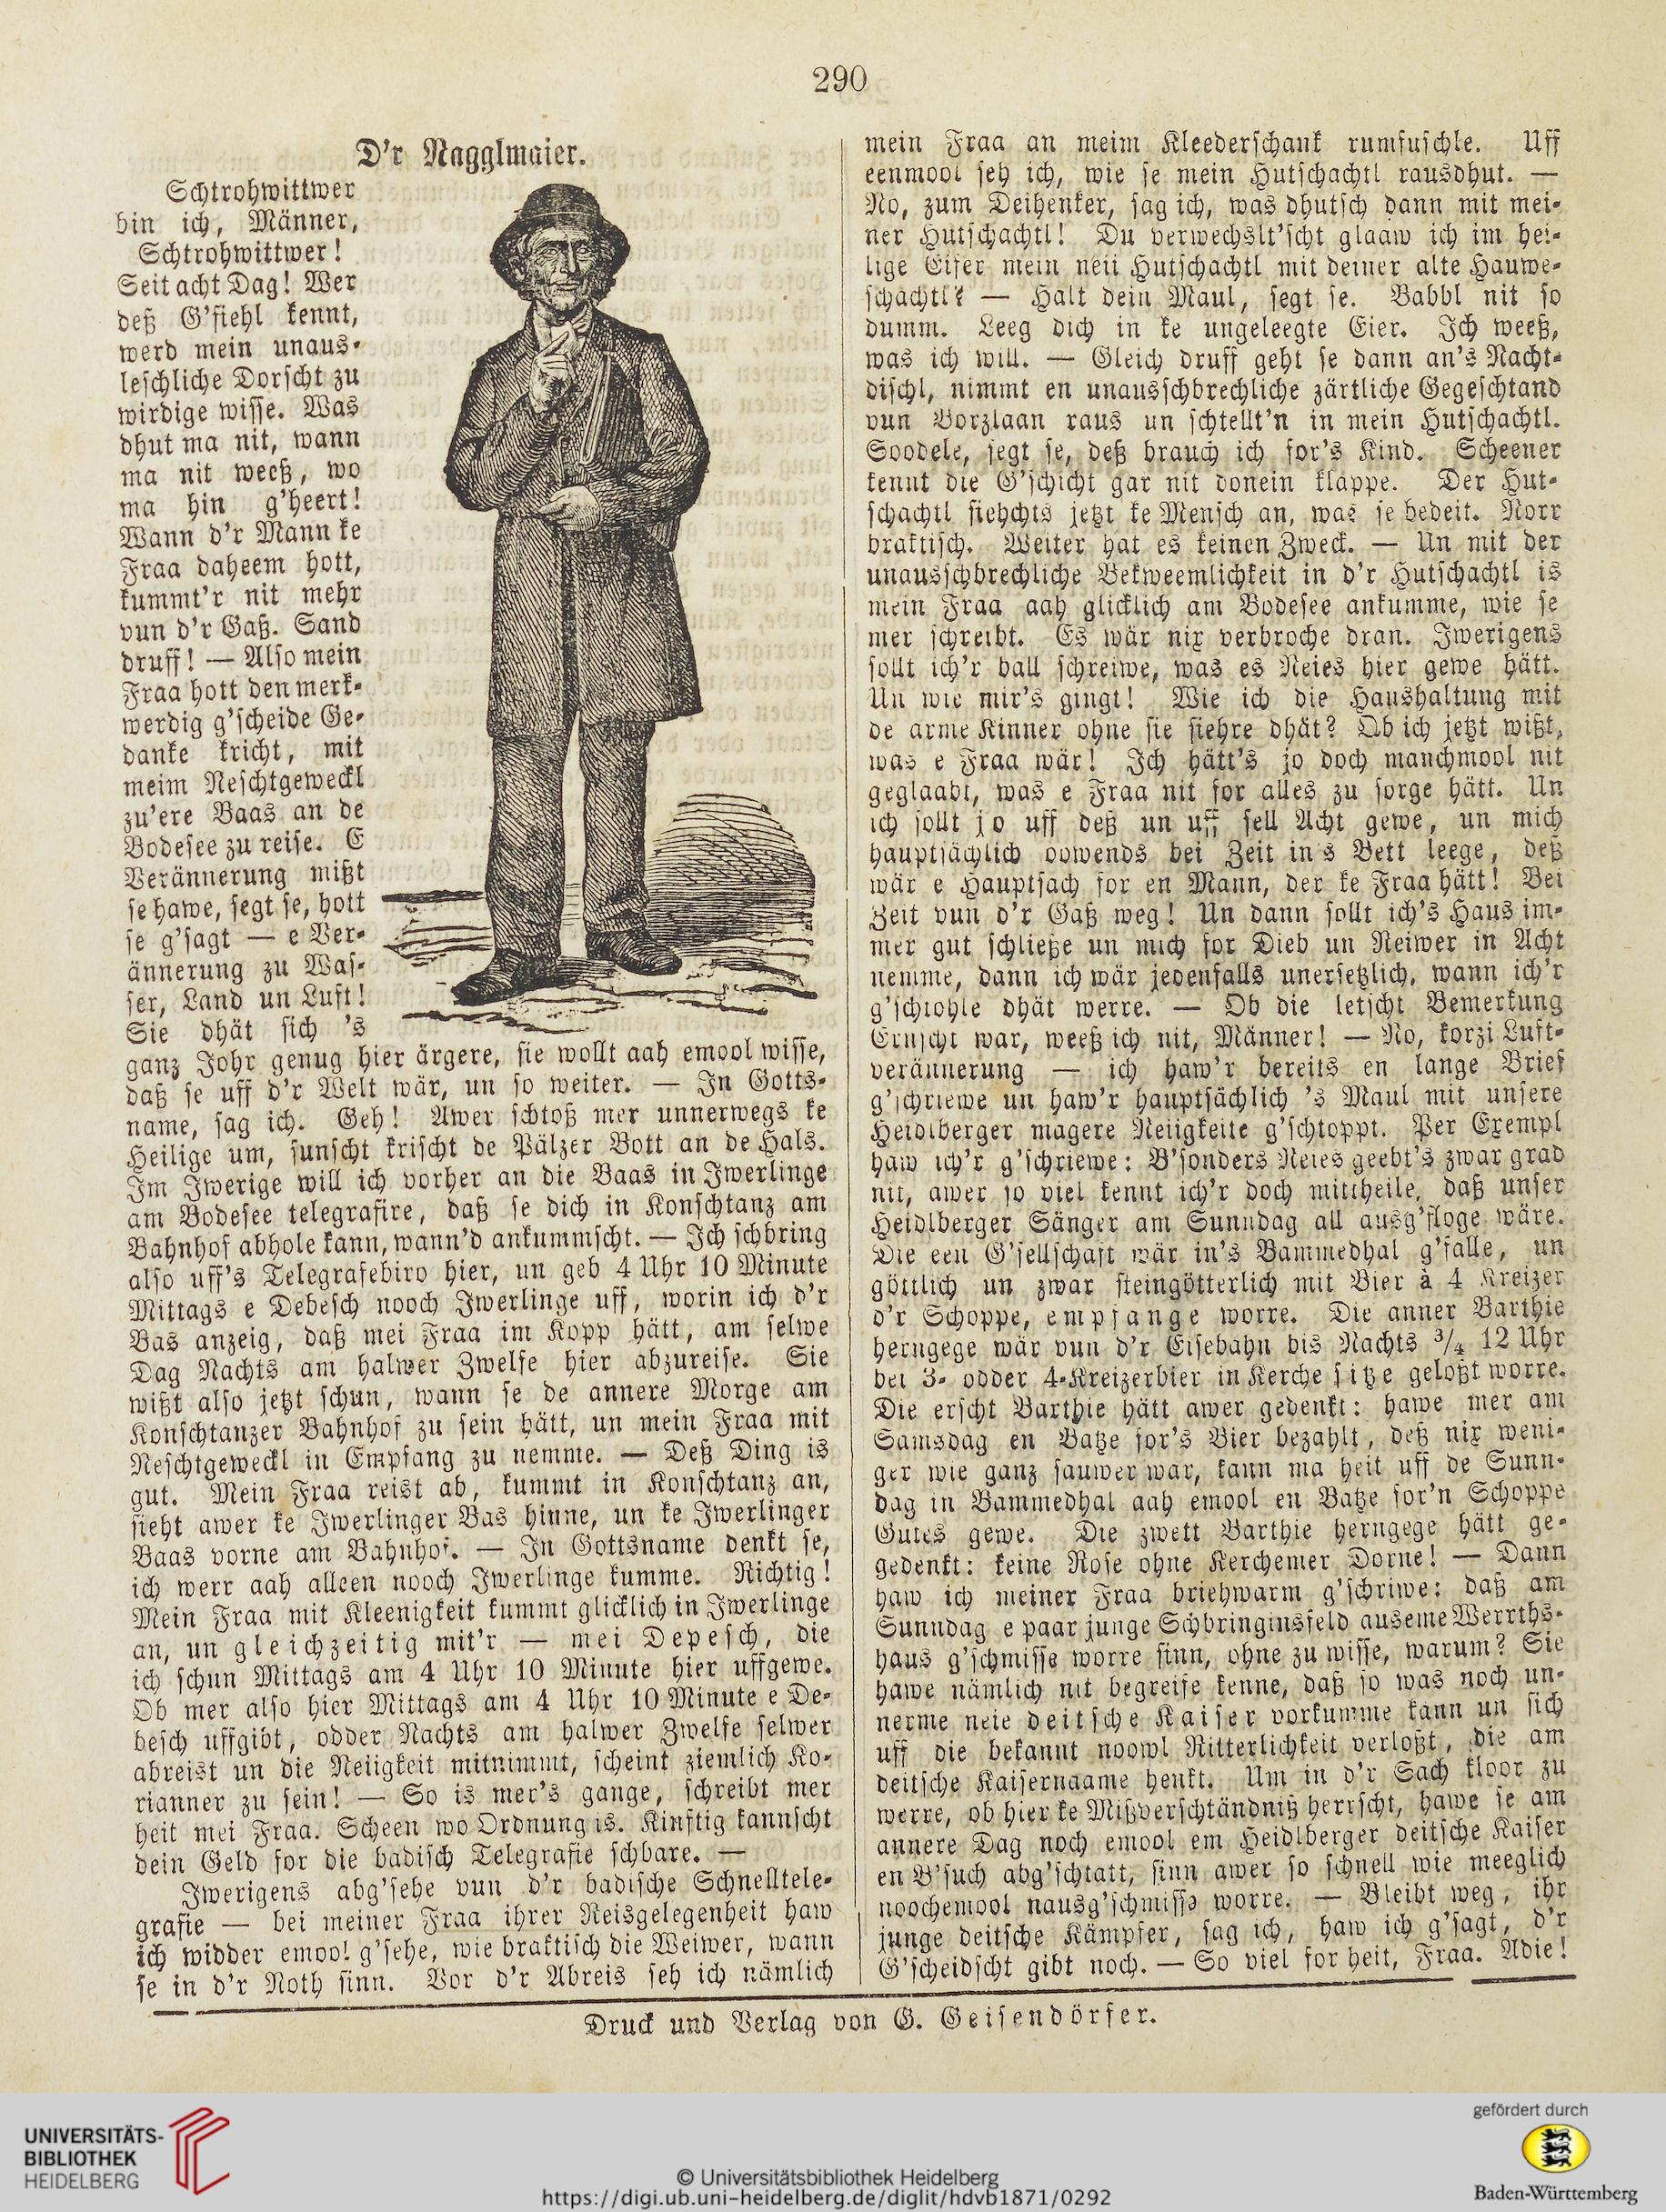 290
D'r Nagglmaier.
Schtrohwittwer
bin ich, Männer,
Schtrohwittwer!
Seit acht Dag! Wer
deß G'fiehl kennt,
werd mein unaus-
leschliche Dorscht zu
wirdige wisse. Was
dhut ma nit, wann
ma nit weeß, wo
ma hin g'heert!
Wann d'r Mann ke
Fraa daheem hott,
kummt'r nit mehr
vun d'r Gaß. Sand
druff! — Also mein
Fraa hott den merk-
werdig g'scheide Ge-
danke kricht, mit
meim Neschtgeweckl
zu'ere Baas an de
Bodesee zu reise. E
Verännerung mißt
se hawe, segt se, hott
se g'sagt — e Ver-
ännerung zu Was-
ser, Land un Luft!
Sie dhät sich 's
ganz Johr genug hier ärgere, sie wollt aah emool wisse,
daß se uff d'r Welt wär, un so weiter. — In Gotts-
name, sag ich. Geh! Awer schtoß mer unnerwegs ke
Heilige um, sunscht krischt de Pälzer Bott an de Hals.
Im Iwerige will ich vorher an die Baas in Iwerlinge
am Bodesee telegrafire, daß se dich in Konschtanz am
Bahnhof abhole kann, wann'd ankummscht. — Ich schbring
also uff's Telegrafebiro hier, un geb 4 Uhr 10 Minute
Mittags e Debesch nooch Iwerlinge uff, worin ich d'r
Bas anzeig, daß mei Fraa im Kopp hätt, am selwe
Dag Nachts am halwer Zwelfe hier abzureise. Sie
wißt also jetzt schun, wann se de annere Morge am
Konschtanzer Bahnhof zu sein hätt, un mein Fraa mit
Neschtgeweckl in Empfang zu nemme. — Deß Ding is
gut. Mein Fraa reist ab, kummt in Konschtanz an,
sieht awer ke Iwerlinger Bas hinne, un ke Iwerlinger
Baas vorne am Bahnhof. — In Gottsname denkt se,
ich werr aah alleen nooch Iwerlinge kumme. Richtig!
Mein Fraa mit Kleenigkeit kummt glicklich in Iwerlinge
an, un gleichzeitig mit'r — mei Depesch, die
ich schun Mittags am 4 Uhr 10 Minute hier uffgewe.
Ob mer also hier Mittags am 4 Uhr 10 Minute e De-
besch uffgibt, odder Nachts am halwer Zwelfe selwer
abreist un die Neiigkeit mitnimmt, scheint ziemlich Ko-
rianner zu sein! — So is mer's gange, schreibt mer
heit mei Fraa. Scheen wo Ordnung is. Kinftig kannscht
dein Geld for die badisch Telegrafie schbare. —
Iwerigens abg'sehe vun d'r badische Schnelltele-
grafie — bei meiner Fraa ihrer Reisgelegenheit haw
ich widder emool g'sehe, wie braktisch die Weiwer, wann
se in d'r Noth sinn. Vor d'r Abreis seh ich nämlich
mein Fraa an meim Kleederschank rumfuschle. Uff
eenmool seh ich, wie se mein Hutschachtl rausdhut. —
No, zum Deihenker, sag ich, was dhutsch dann mit mei-
ner Hutschachtl! Du verwechslt'scht glaaw ich im hei-
lige Eifer mein neii Hutschachtl mit deiner alte Hauwe-
schachtl? — Halt dein Maul, segt se. Babbl nit so
dumm. Leeg dich in ke ungeleegte Eier. Ich weeß,
was ich will. — Gleich druff geht se dann an's Nacht-
dischl, nimmt en unausschbrechliche zärtliche Gegeschtand
vun Borzlaan raus un schtellt'n in mein Hutschachtl.
Soodele, segt se, deß brauch ich for's Kind. Scheener
kennt die G'schicht gar nit donein klappe. Der Hut-
schachtl siehchts jetzt ke Mensch an, was se bedeit. Norr
braktisch. Weiter hat es keinen Zweck. — Un mit der
unausschbrechliche Bekweemlichkeit in d'r Hutschachtl is
mein Fraa aah glicklich am Bodesee ankumme, wie se
mer schreibt. Es wär nix verbroche dran. Iwerigens
sollt ich'r ball schreiwe, was es Neies hier gewe hätt.
Un wie mir's gingt! Wie ich die Haushaltung mit
de arme Kinner ohne sie fiehre dhät? Ob ich jetzt wißt,
was e Fraa wär! Ich hätt's jo doch manchmool nit
geglaabt, was e Fraa nit for alles zu sorge hätt. Un
ich sollt jo uff deß un uff sell Acht gewe, un mich
hauptsächlich oowends bei Zeit in's Bett leege, deß
wär e Hauptsach for en Mann, der ke Fraa hätt! Bei
Zeit vun d'r Gaß weg! Un dann sollt ich's Haus im-
mer gut schließe un mich for Dieb un Reiwer in Acht
nemme, dann ich wär jedenfalls unersetzlich, wann ich'r
g'schtohle dhät werre. — Ob die letscht Bemerkung
Ernscht war, weeß ich nit, Männer! — No, korzi Luft-
verännerung — ich haw'r bereits en lange Brief
g'schriewe un haw'r hauptsächlich 's Maul mit unsere
Heidlberger magere Neiigkeite g'schtoppt. Per Exempl
haw ich'r g'schriewe: B'sonders Neies geebt's zwar grad
nit, awer so viel kennt ich'r doch mittheile, daß unser
Heidlberger Sänger am Sunndag all ausg'floge wäre.
Die een G'sellschaft wär in's Bammedhal g'falle, un
göttlich un zwar steingötterlich mit Bier à 4 Kreizer
d'r Schoppe, empfange worre. Die anner Barthie
herngege wär vun d'r Eisebahn bis Nachts 3/4 12 Uhr
bei 3- odder 4-Kreizerbier in Kerche sitze geloßt worre.
Die erscht Barthie hätt awer gedenkt: hawe mer am
Samsdag en Batze for's Bier bezahlt, deß nix weni-
ger wie ganz sauwer war, kann ma heit uff de Sunn-
dag in Bammedhal aah emool en Batze for'n Schoppe
Gutes gewe. Die zwett Barthie herngege hätt ge-
gedenkt: keine Rose ohne Kerchemer Dorne! — Dann
haw ich meiner Fraa briehwarm g'schriwe: daß am
Sunndag e paar junge Schbringinsfeld aus eme Werrths-
haus g'schmisse worre sinn, ohne zu wisse, warum? Sie
hawe nämlich nit begreife kenne, daß so was noch un-
nerme neie deitsche Kaiser vorkumme kann un sich
uff die bekannt noowl Ritterlichkeit verloßt, die am
deitsche Kaisernaame henkt. Um in d'r Sach kloor zu
werre, ob hier ke Mißverschtändniß herrscht, hawe se am
annere Dag noch emool em Heidlberger deitsche Kaiser
en B'such abg'schtatt, sinn awer so schnell wie meeglich
noochemool nausg'schmisse worre. — Bleibt weg, ihr
junge deitsche Kämpfer, sag ich, haw ich g'sagt, d'r
G'scheidscht gibt noch. — So viel for heit, Fraa. Adie!
Druck und Verlag von G. Geisendörfer.
UNIVERSITÄTS-
BIBLIOTHEK
HEIDELBERG
© Universitätsbibliothek Heidelberg
https://digi.ub.uni-heidelberg.de/diglit/hdvb1871/0292
gefördert durch
Baden-Württemberg